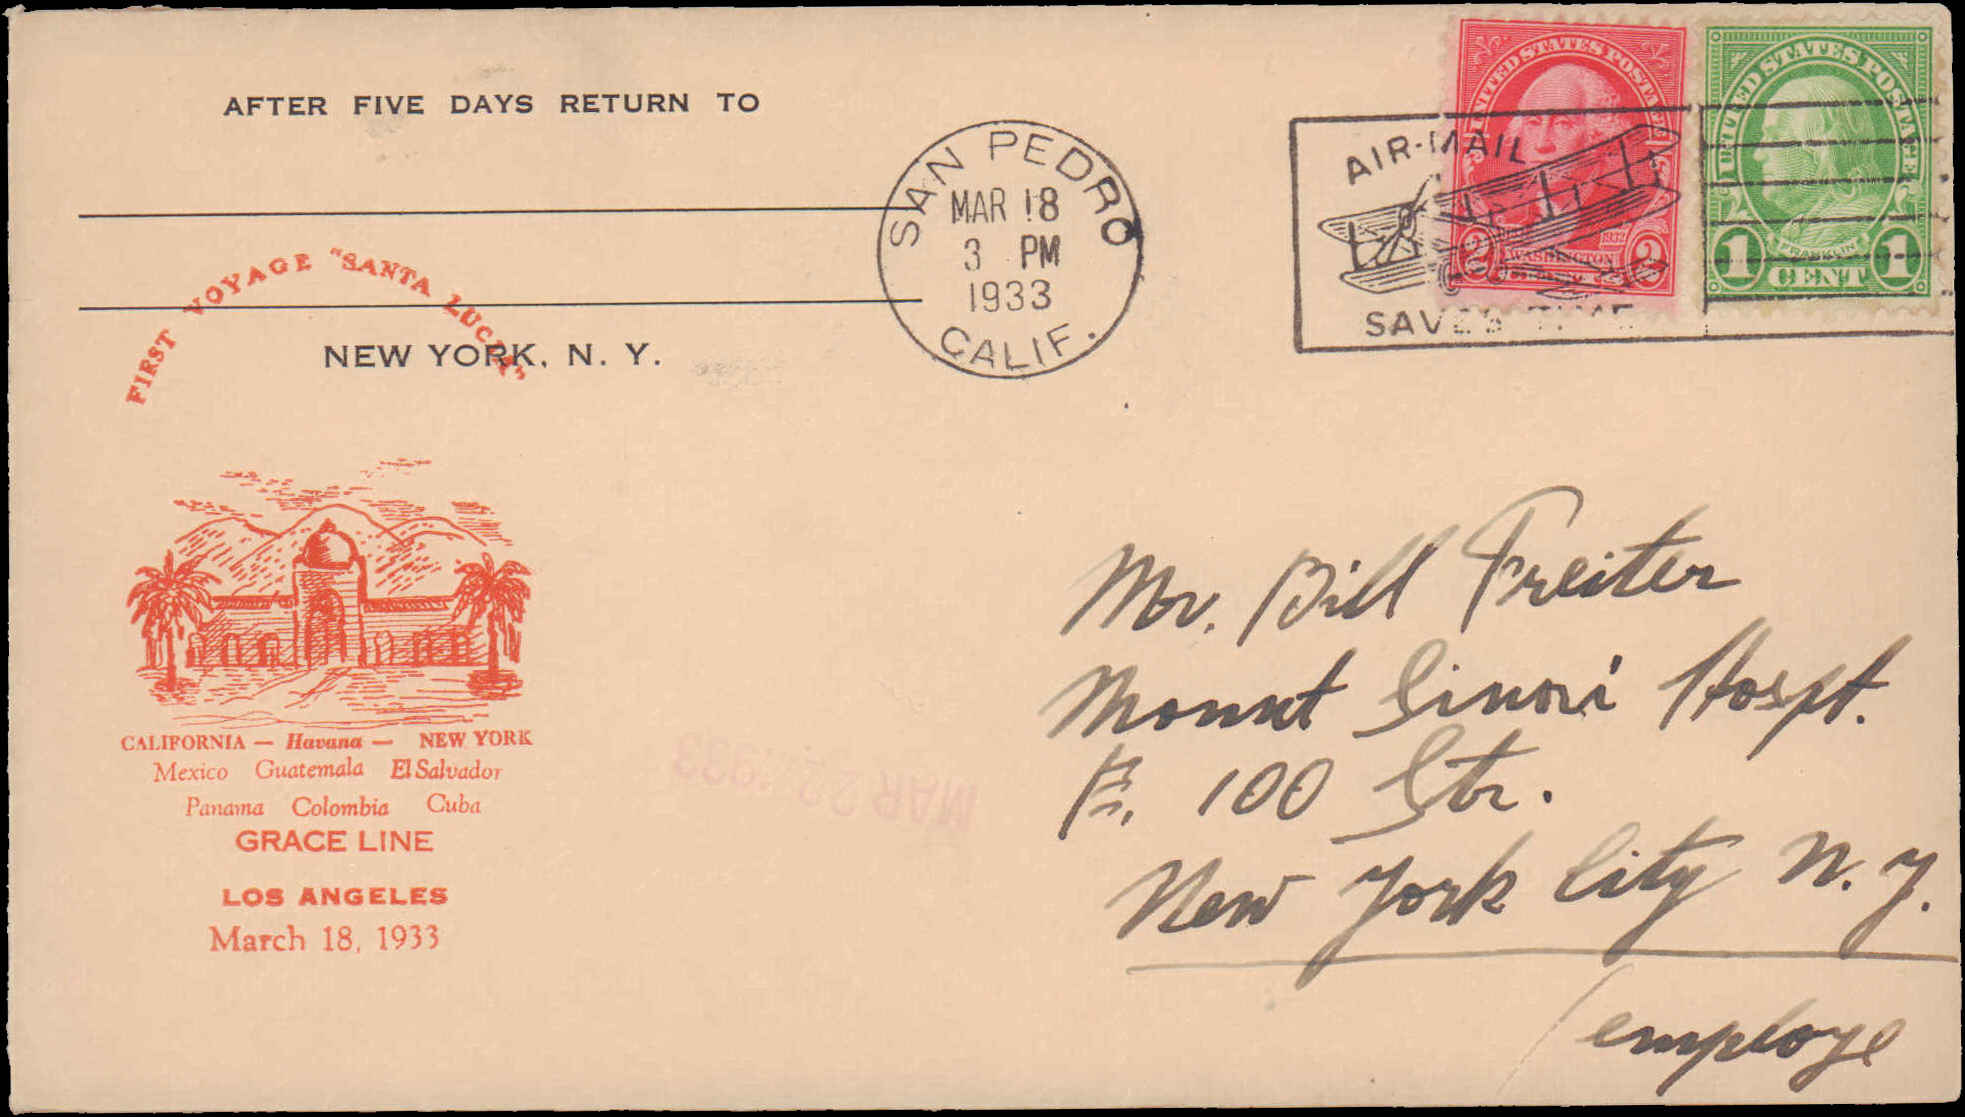 AFTER FIVE DAYS RETURN TO
NEW YORK, N. Y.
FIRST VOYAGE "SANTA LUCIA"
CALIFORNIA — Havana — NEW YORK
Mexico Guatemala El Salvador
Panama Colombia Cuba
GRACE LINE
LOS ANGELES
March 18, 1933
SAN PEDRO
MAR 18
3 PM
1933
CALIF.
AIR-MAIL
SAVES TIME
UNITED STATES POSTAGE
1732
WASHINGTON
2 2
UNITED STATES POSTAGE
FRANKLIN
1 CENT 1
Mr. Bill Freiter
Mount Sinai Hospt.
E. 100 Str.
New York City N. Y.
(employe
MAR 1933